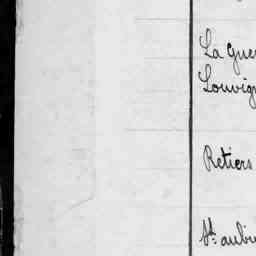 La Guer
Louvign
Retiers
St. aubi